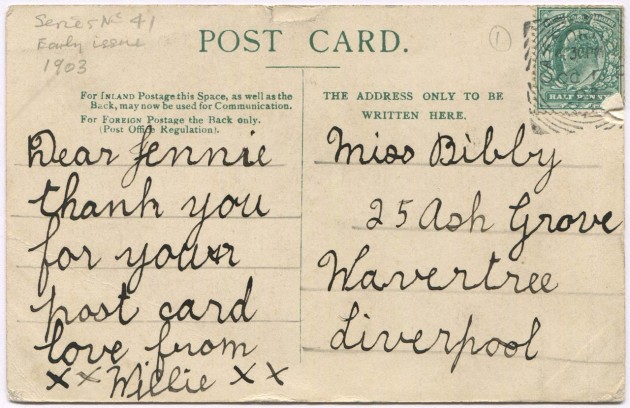 Series No 41
Early issue
1903
1
POST CARD.
For INLAND Postage this Space, as well as the
Back, may now be used for Communication.
For FOREIGN Postage the Back only.
(Post Office Regulation).
THE ADDRESS ONLY TO BE
WRITTEN HERE.
HALF PENNY
Dear Jennie
thank you
for your
post card
love from
x x Willie x x
Miss Bibby
25 Ash Grove
Wavertree
Liverpool